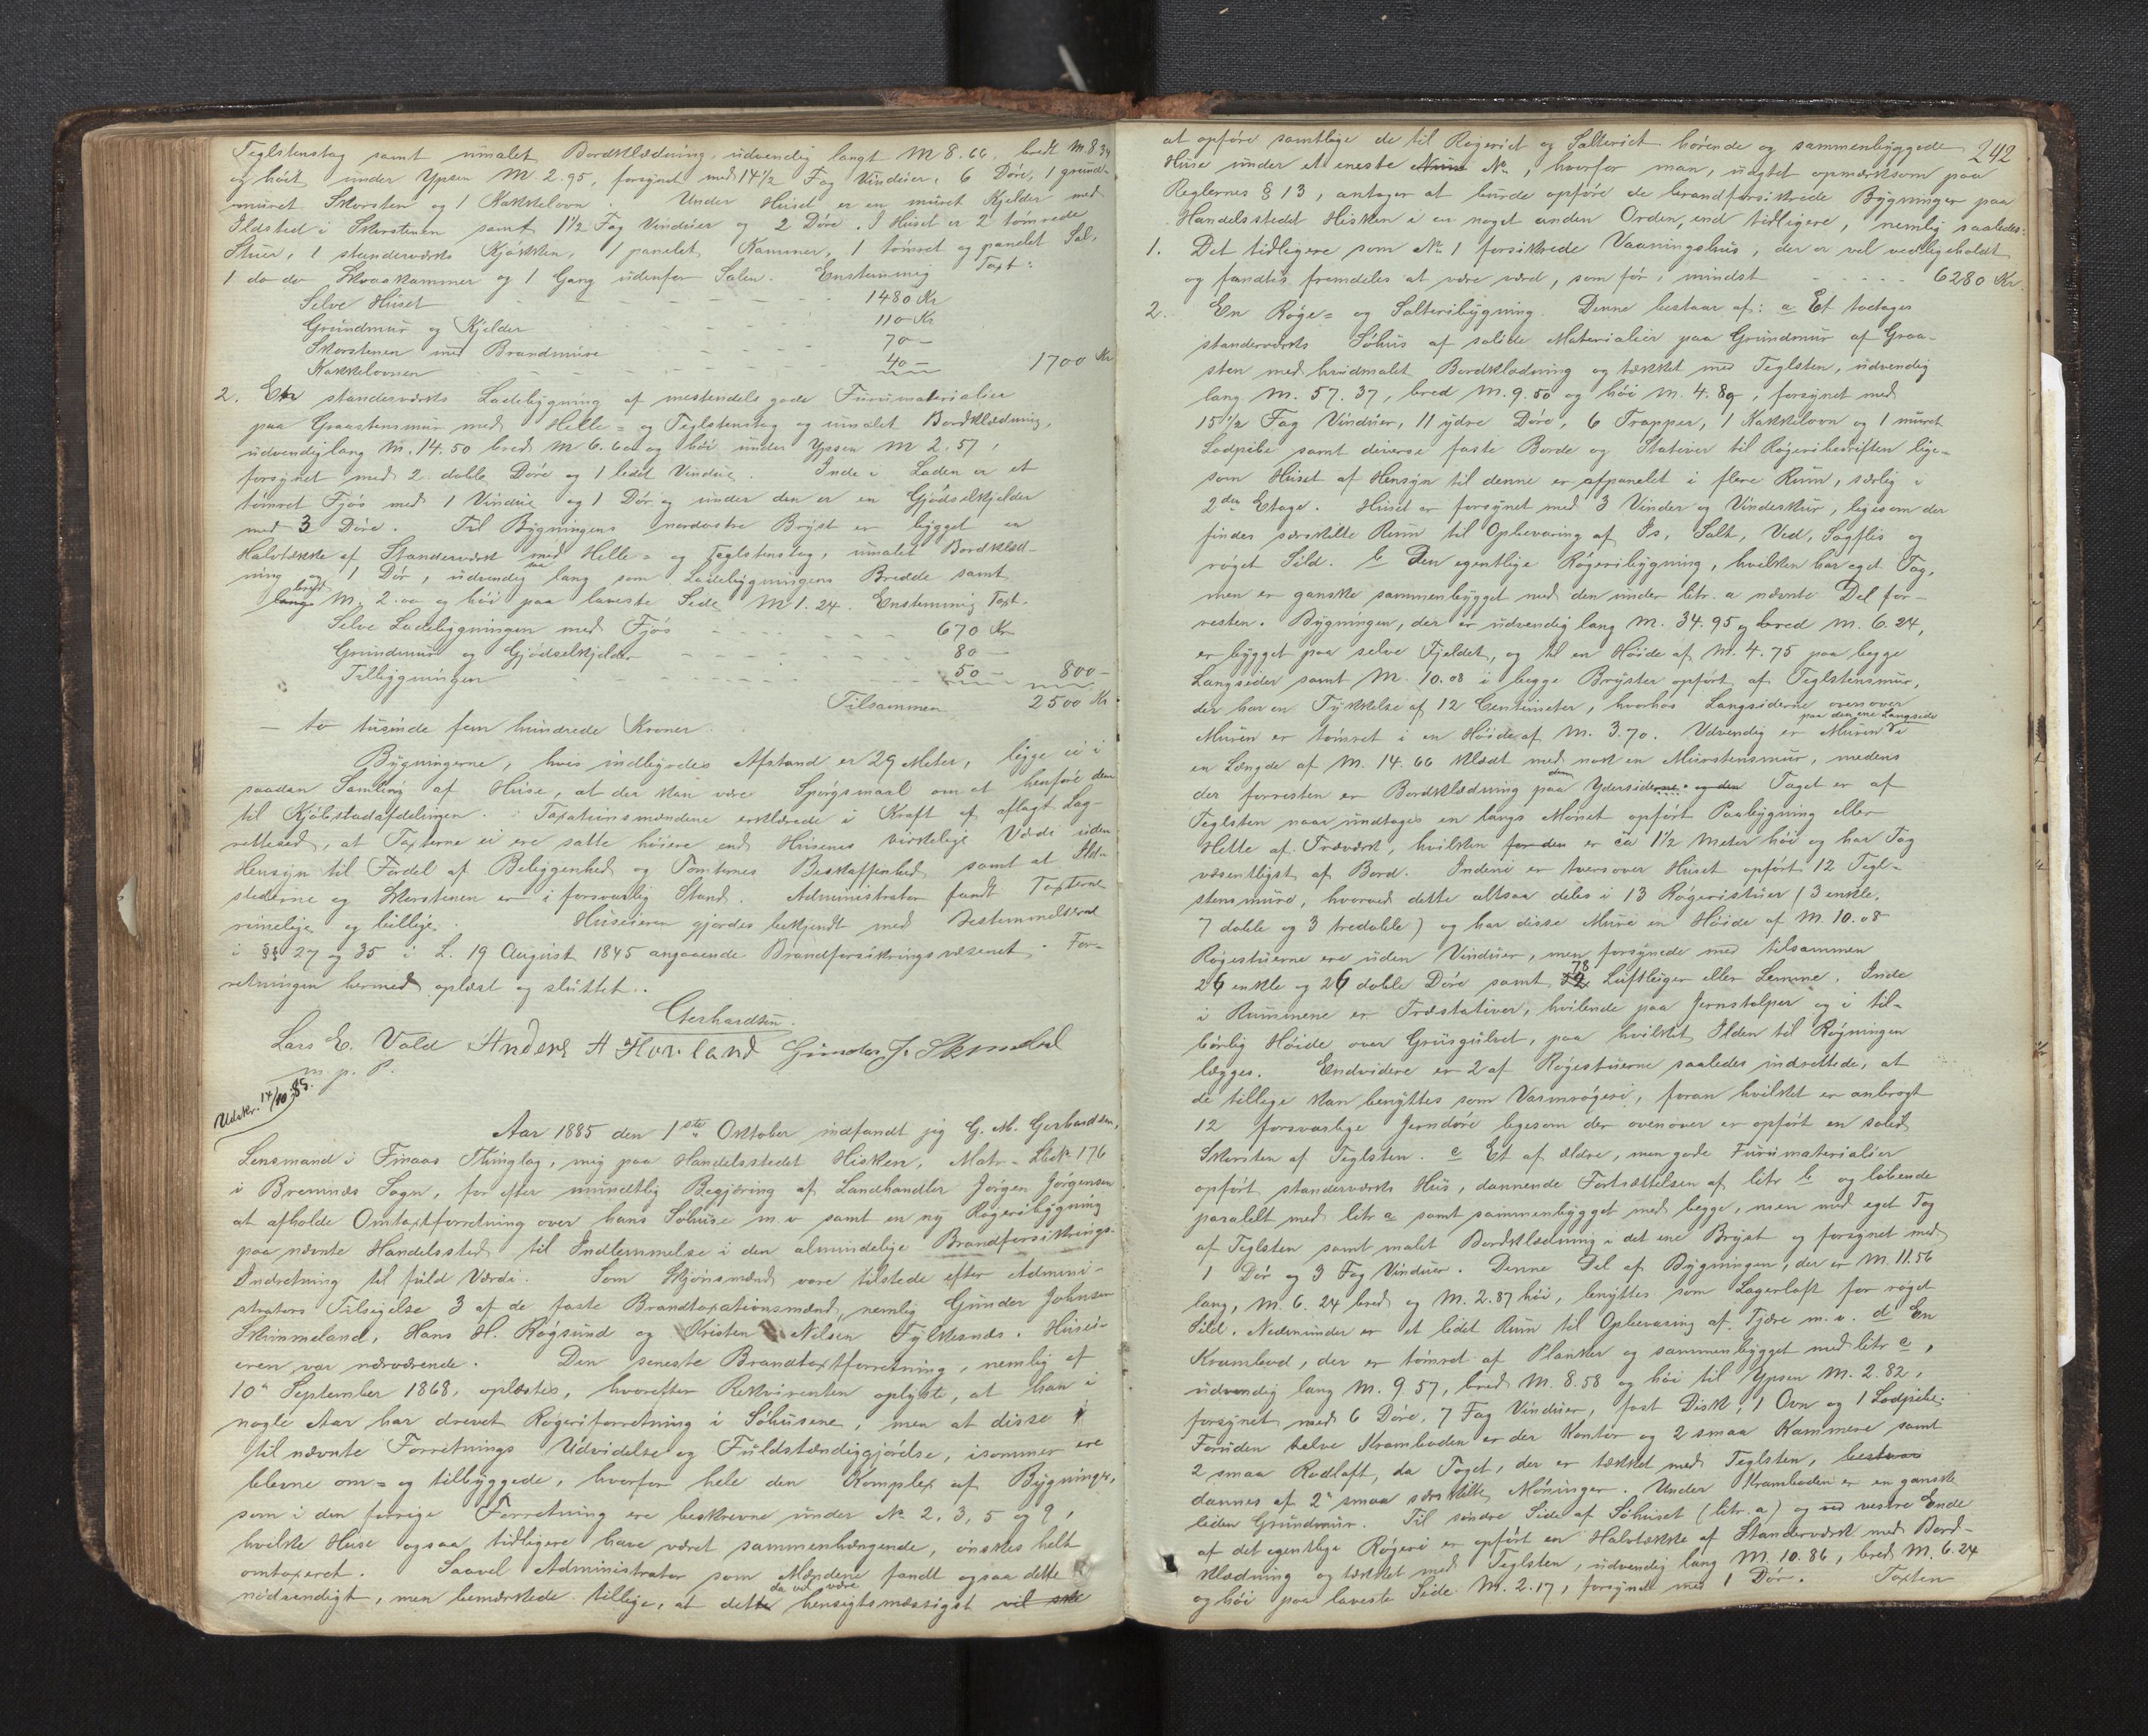 Teglstenstag samt umalet Bordklædning, udvendig langt M 8.66, bredt M 8.34
og høit under Ypsen M. 2.95, forsynet med 14 1/2 Fag Vinduer, 6 Døre, 1 grund-
muret Skorsten og 1 Kakkelovn. Under Huset er en muret Kjelder med
Ildsted i Skorstenen samt 1 1/2 Fag Vinduer og 2 Døre. I Huset er 2 tømrede
Stuer, 1 standerværks Kjøkken, 1 panelet Kammer, 1 tømret og panelet Sal,
1 do do Skraakammer og 1 Gang udenfor Salen. Enstemmig Taxt:
Selve Huset 1480 Kr
Grundmur og Kjelder 110 Kr
Skorstenen med Brandmure 70 —
Kakkelovnen 40 — 1700 Kr
2. En standerværks Ladebygning af mestendels gode Furumaterialier
paa Graastensmur med Helle- og Teglstenstag og umalet Bordklædning,
udvendig lang M. 14.50 bred M 6.60 og høi under Ypsen M 2.51,
forsynet med 2 doble Døre og 1 lidet Vindue. Inde i Laden er et
tømret Fjøs med 1 Vindue og 1 Dør og under den er en Gjødselkjelder
med 3 Døre. Til Bygningens nordøstre Bryst er bygget en
Halvtække af Standerværk med Helle- og Teglstenstag, umalet Bordklæd-
ning og 1 Dør, udvendig lang som Ladebygningens Bredde samt
bred M. 2.00 og høi paa laveste Side M 1.24. Enstemmig Taxt.
Selve Ladebygningen med Fjøs 670 Kr
Grundmur og Gjødselkjelder 80 —
Tilbygningen 50 — 800 —
Tilsammen 2500 Kr.
— to tusinde fem hundrede Kroner.
Bygningerne, hvis indbyrdes Afstand er 29 Meter, ligge ei i
saadan Samling af Huse, at der kan være Spørgsmaal om at henføre dem
til Kjøbstadafdelingen. Taxationsmændene erklærede i Kraft af aflagt Lag-
retteed, at Taxterne ei ere satte høiere end Husenes virkelige Værdi uden
Hensyn til Fordel af Beliggenhed og Tomternes Beskaffenhed samt at Ild-
stederne og Skorstenen er i forsvarlig Stand. Administrator fandt Taxterne
rimelige og billige. Huseieren gjordes bekjendt med Bestemmelserne
i §§ 27 og 35 i L. 19 August 1845 angaaende Brandforsikringsvæsenet. For-
retningen hermed oplæst og sluttet..
Gerhardsen.
Lars E. Vold Anders A Hovland Gunder J. Skimeland
m. p. P.
Udskr. 14/10 85.
Aar 1885 den 1ste Oktober indfandt jeg G. M. Gerhardsen,
Lensmand i Finaas Thinglag, mig paa Handelsstedet Hisken, Matr. LNo 176
i Bremnæs Sogn, for efter mundtlig Begjæring af Landhandler Jørgen Jørgensen
at afholde Omtaxtforretning over hans Søhuse m. v. samt en ny Røgeribygning
paa nævnte Handelssted til Indlemmelse i den almindelige Brandforsikrings-
Indretning til fuld Værdi. Som Skjønsmænd vare tilstede efter Admini-
strators Tilsigelse 3 af de faste Brandtaxationsmænd, nemlig Gunder Johnsen
Skimmeland, Hans H. Røgsund og Kristen Nilsen Fylkesnæs. Husei-
eren var nærværende. Den seneste Brandtaxtforretning, nemlig af
10de September 1868, oplæstes, hvorefter Rekvirenten oplyste, at han i
nogle Aar har drevet Røgeriforretning i Søhusene, men at disse
til nævnte Forretnings Udvidelse og Fuldstændiggjørelse, isommer ere
blevne om- og tilbyggede, hvorfor hele den Komplex af Bygninger,
som i den forrige Forretning ere beskrevne under No 2, 3, 5 og 9,
hvilke Huse ogsaa tidligere have været sammenhængende, ønskes helt
omtaxeret. Saavel Administrator som Mændene fandt ogsaa dette
nødvendigt, men bemærkede tillige, at det da vil være hensigtsmæssigst vil ske
242
at opføre samtlige de til Røgeriet og Salteriet hørende og sammenbyggede
Huse under et eneste Num No, hvorfor man, udgtet opmærksom paa
Reglernes § 13, antager at burde opføre de brandforsikrede Bygninger paa
Handelsstedet Hisken i en noget anden Orden, end tidligere, nemlig saaledes:
1. Det tidligere som No 1 forsikrede Vaaningshus, der er vel vedligeholdt
og fandtes fremdeles at være værd, som før, mindst 6280 Kr.
2. En Røge- og Salteribygning. Denne bestaar af: a Et toetages
standerværks Søhus af solide Materialier paa Grundmur af Graa-
sten med hvidmalet Bordklædning og tækket med Teglsten, udvendig
lang M. 57.37, bred M. 9.50 og høi M. 4.89, forsynet med
15 1/2 Fag Vinduer, 11 ydre Døre, 6 Trapper, 1 Kakkelovn og 1 muret
Lodpibe samt diverse faste Borde og Stativer til Røgeribedriften lige-
som Huset af Hensyn til denne er afpanelet i flere Rum, særlig i
2den Etage. Huset er forsynet med 3 Vinder og Vindeskur, ligesom der
findes særskilte Rum til Opbevaring af Is, Salt, Ved, Sagflis og
røget Sild. b Den egentlige Røgeribygning, hvilken har eget Tag,
men er ganske sammenbygget med den under litr. a nævnte Del for-
resten. Bygningen, der er udvendig lang M. 34.95 og bred M. 6.24,
er bygget paa selve Fjeldet, og til en Høide af M. 4.75 paa begge
Langsider samt M. 10.08 i begge Bryster opført af Teglstensmur,
der har en Tykkelse af 12 Centimeter, hvorhos Langsiderne ovenover
Muren er tømret i en Høide af M. 3.70. Udvendig er Muren paa den ene Langside i
en Længde af M. 14.66 klædt med nok en Murstensmur, medens
der forresten er Bordklædning paa Ydersiderne. og den Taget er af
Teglsten naar undtages en langs Mønet opført Paabygning eller
Hette af Træværk, hvilken for den er ca 1 1/2 Meter høi og har Tag
væsentligst af Bord. Indeni er tversover Huset opført 12 Tegl-
stensmure, hvorved dette altsaa deles i 13 Røgeristuer (3 enkle,
7 doble og 3 tredoble) og har disse Mure en Høide af M. 10.08
Røgestuerne ere uden Vinduer, men forsynede med tilsammen
26 enkle og 26 doble Døre samt 78 Luftluger eller Lemme. Inde
i Rummene er Træstativer, hvilende paa Jernstolper og i til-
børlig Høide over Grusgulvet, paa hvilket Ilden til Røgningen
lægges. Endvidere er 2 af Røgestuerne saaledes indrettede, at
de tillige kan benyttes som Varmrøgeri, foran hvilket er anbragt
12 forsvarlige Jerndøre ligesom der ovenover er opført en solid
Skorsten af Teglsten. c Et af ældre, men gode Furumaterialier
opført standerværks Hus, dannende Fortsættelsen af litr b og løbende
paralelt med litr a samt sammenbygget med begge, men med eget Tag
af Teglsten samt malet Bordklædning i det ene Bryst og forsynet med
1 Dør og 3 Fag Vinduer. Denne Del af Bygningen, der er M. 11.56
lang, M. 6.24 bred og M. 2.87 høi, benyttes som Lagerloft for røget
Sild. Nedenunder er et lidet Rum til Opbevaring af Tjære m. v. d En
Krambod, der er tømret af Planker og sammenbygget med litr c,
udvendig lang M. 9.57, bred M. 8.58 og høi til Ypsen M. 2.82,
forsynet med 6 Døre, 7 Fag Vinduer, fast Disk, 1 Ovn og 1 Lodpibe.
Foruden selve Kramboden er der Kontor og 2 smaa Kammere samt
2 smaa Rodloft, da Taget, der er tækket med Teglsten, bestaar
dannes af 2 smaa særskilte Møninger. Under Kramboden er en ganske
liden Grundmur. Til søndre Side af Søhuset (litr. a) og ved vestre Ende
af det egentlige Røgeri er opført en Halvtække af Standerværk med Bord-
klædning og tækket med Teglsten, udvendig lang M. 10.86, bred M. 6.24
og høi paa laveste Side M. 2.17, forsynet med 1 Dør. Taxten